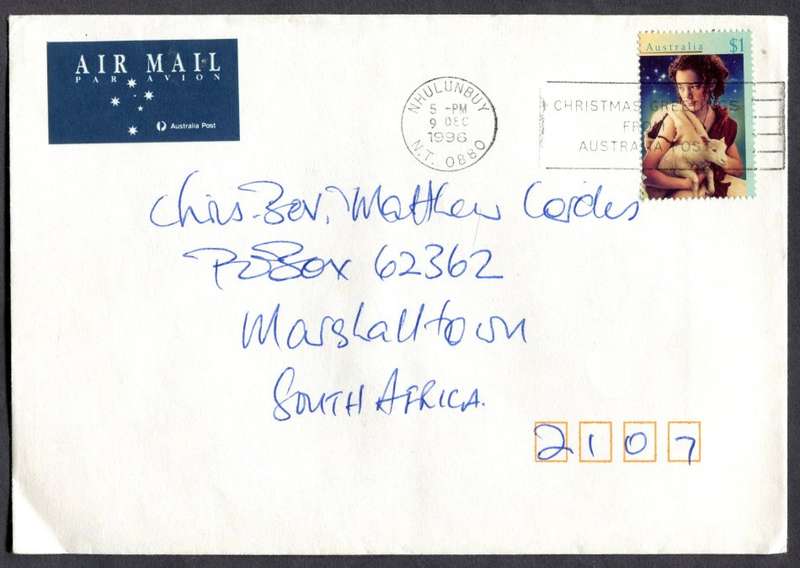 AIR MAIL
PAR AVION
Australia Post
NHULUNBUY
5 -PM
9 DEC
1996
N.T. 0880
CHRISTMAS GREETINGS
FROM
AUSTRALIA POST
Australia $1
Chris. Bev, Matthew
PO Box 62362
Marshalltown
SOUTH AFRICA.
2107